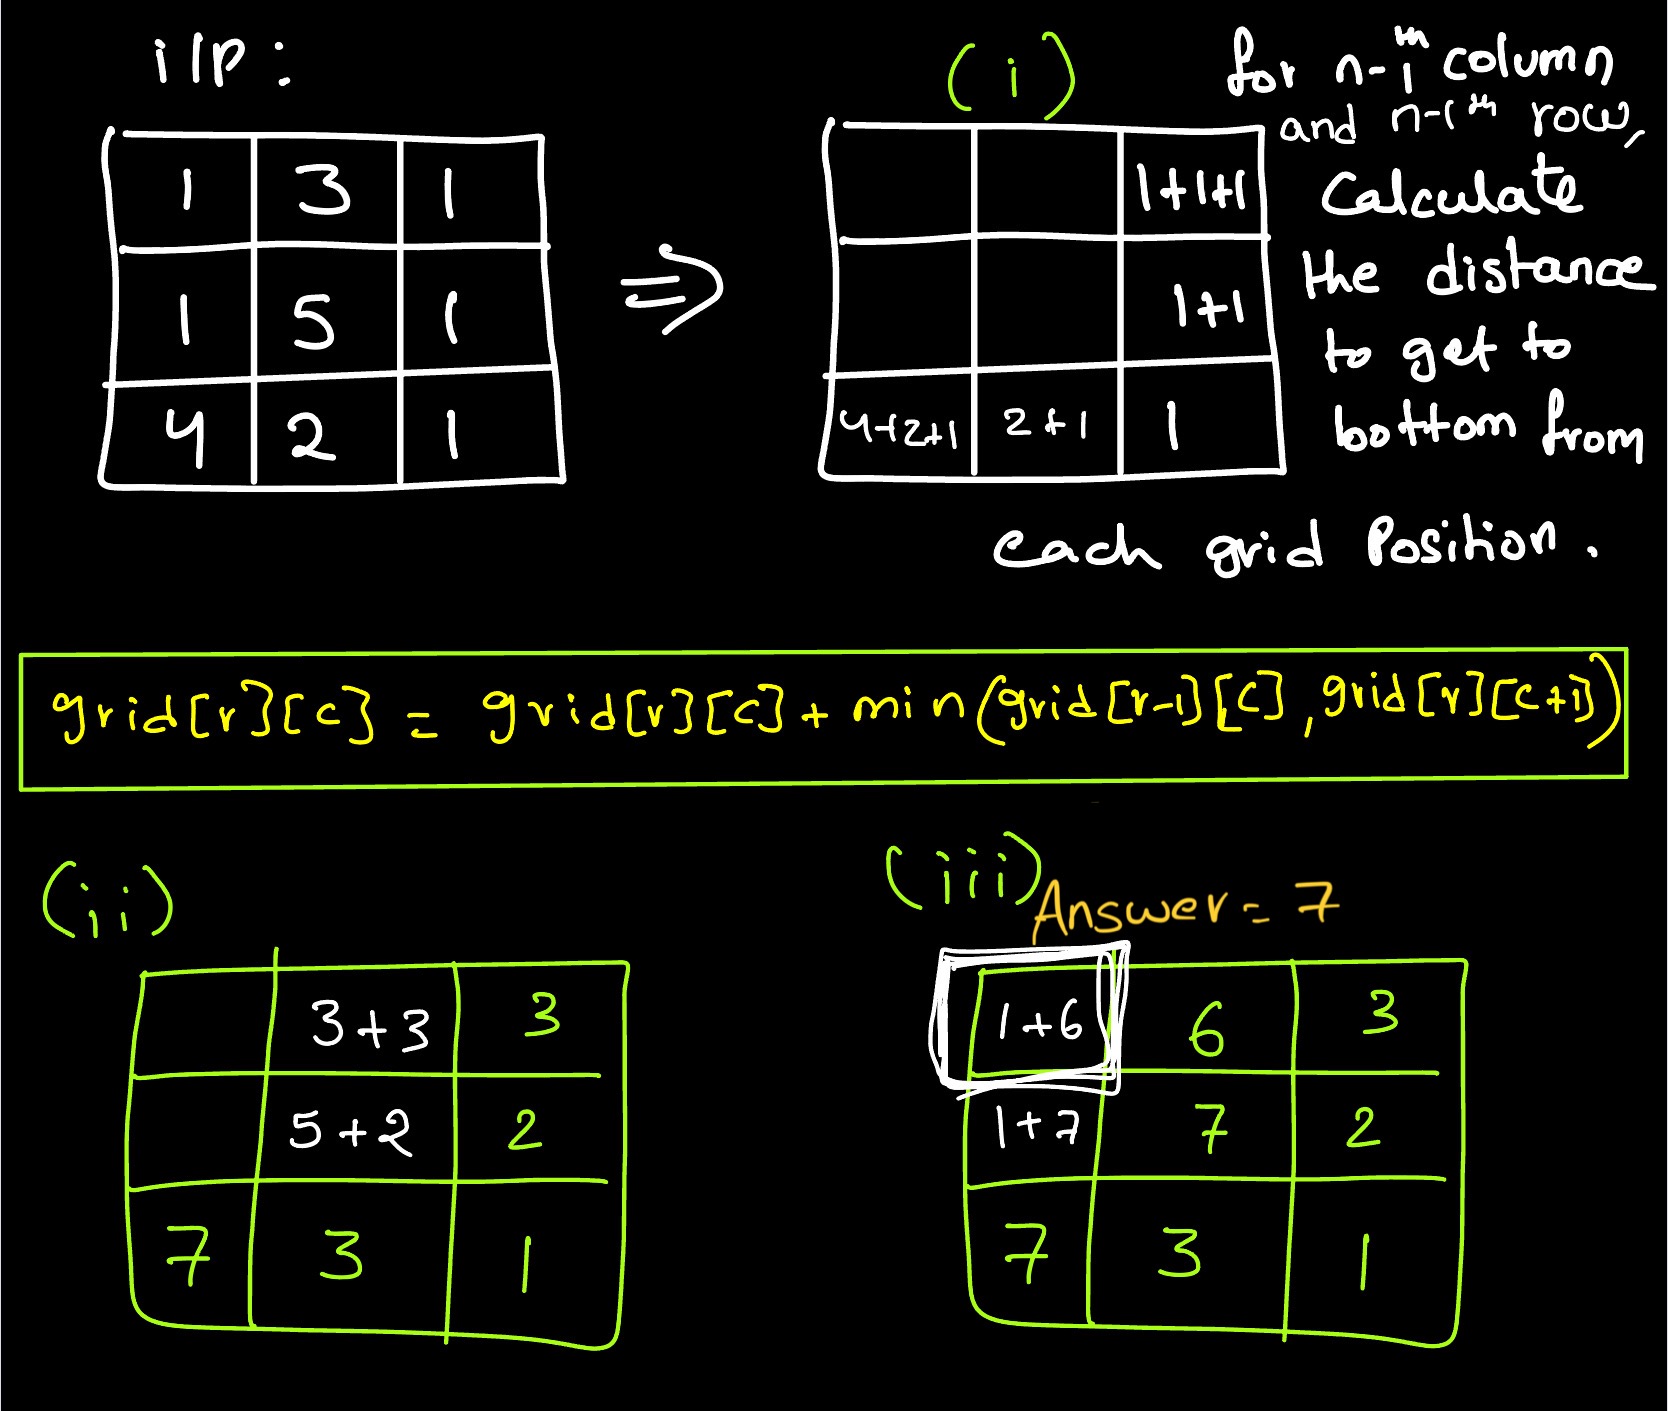 i/p:
1 3 1
1 5 1
4 2 1
⇒
(i)
1+1+1
1+1
4+2+1 2+1 1
for n-1th column
and n-1th row,
Calculate
the distance
to get to
bottom from
each grid Position.
grid[r][c] = grid[r][c] + min(grid[r-1][c], grid[r][c+1])
(ii)
3+3 3
5+2 2
7 3 1
(iii)
Answer = 7
1+6 6 3
1+7 7 2
7 3 1